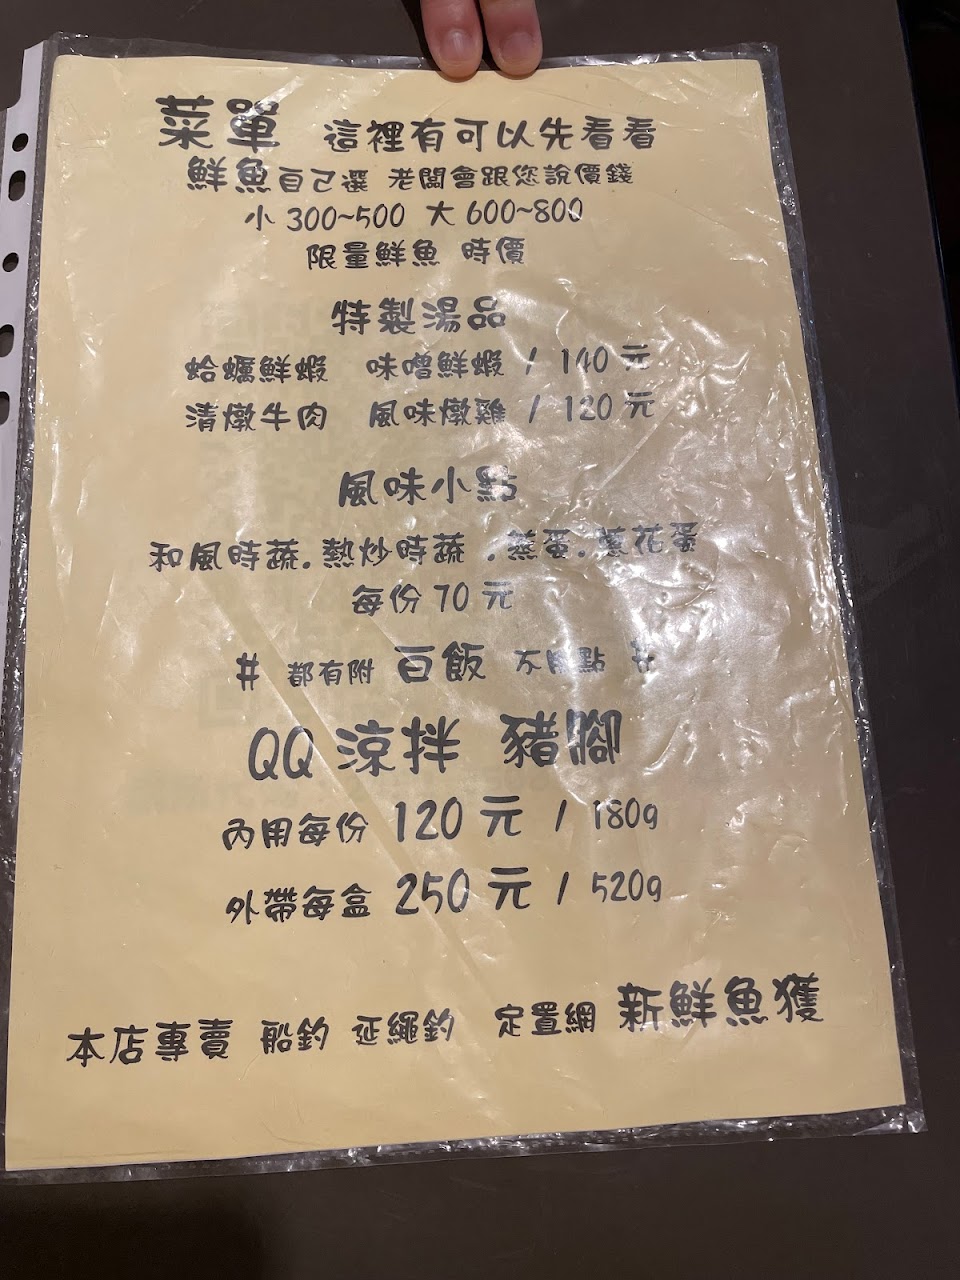 菜單 這裡有可以先看看
鮮魚自己選 老闆會跟您說價錢
小 300~500 大 600~800
限量鮮魚 時價
特製湯品
蛤蠣鮮蝦 味噌鮮蝦 / 140 元
清燉牛肉 風味燉雞 / 120 元
風味小點
和風時蔬.熱炒時蔬 .蒸蛋.蔥花蛋
每份 70 元
# 都有附 白飯 不用點 #
QQ 涼拌 豬腳
內用每份 120 元 / 180g
外帶每盒 250 元 / 520g
本店專賣 船釣 延繩釣 定置網 新鮮魚獲